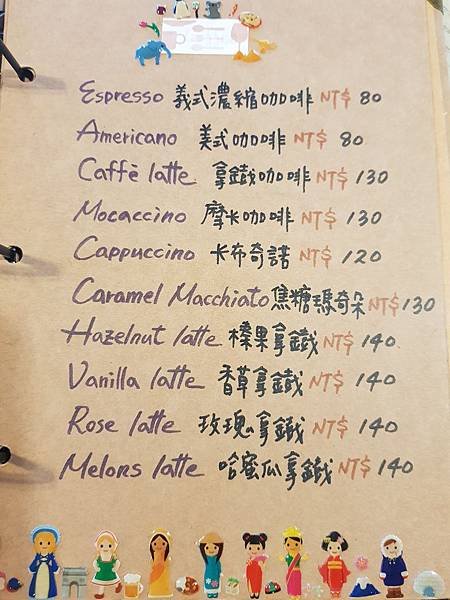 Espresso 義式濃縮咖啡 NT$ 80
Americano 美式咖啡 NT$ 80
Caffè latte 拿鐵咖啡 NT$ 130
Mocaccino 摩卡咖啡 NT$ 130
Cappuccino 卡布奇諾 NT$ 120
Caramel Macchiato 焦糖瑪奇朵 NT$ 130
Hazelnut latte 榛果拿鐵 NT$ 140
Vanilla latte 香草拿鐵 NT$ 140
Rose latte 玫瑰拿鐵 NT$ 140
Melons latte 哈蜜瓜拿鐵 NT$ 140